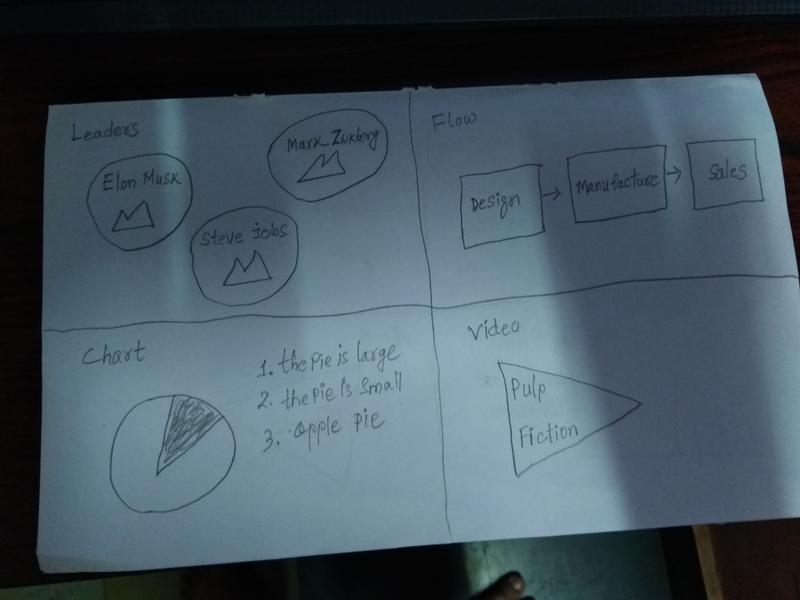 Leaders
Elon Musk
Mark Zukberg
Steve jobs
Flow
Design
Manufacture
Sales
Chart
1. the Pie is large
2. the Pie is Small
3. Apple Pie
Video
Pulp
Fiction